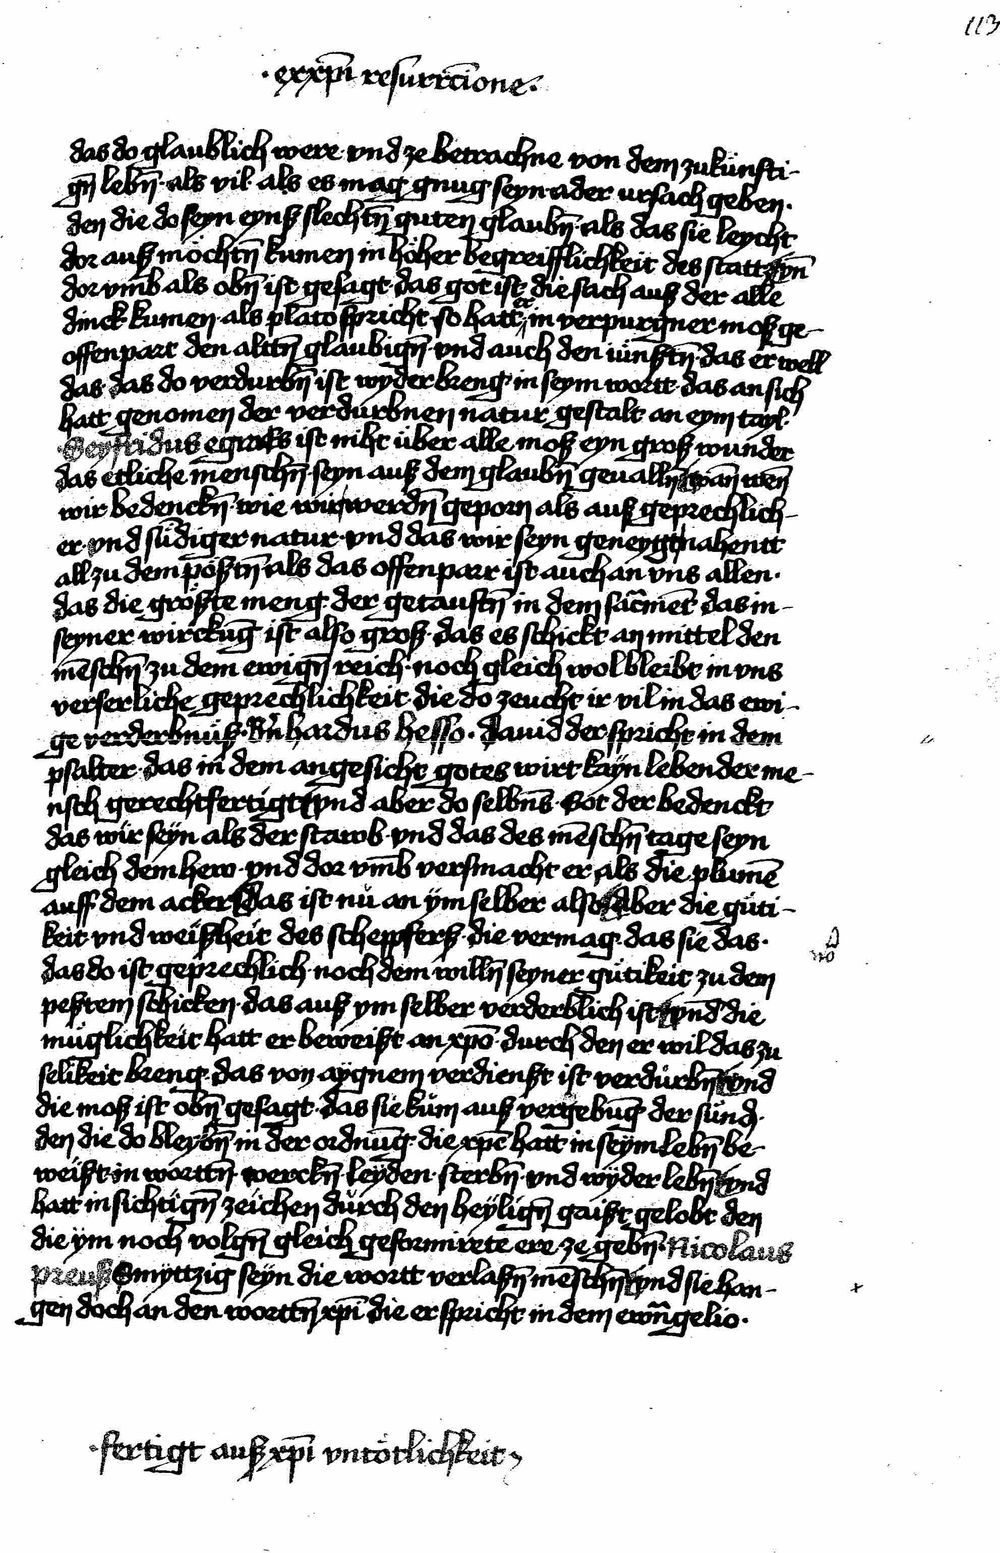 113
· ex xp̄i resurrc̄ione ·
das do glaublich were · vnd ze betrachne von dem zukünfti-
gn̄ lebn̄ · als vil · als es mag gnug seyn · ader vrsach geben ·
den die do seyn eynß slechtn̄ guten glaubn̄ · als das sie leycht
dor auß möchtn̄ kumen in höher begreifflichkeit des statt
dor vm̄b als obn̄ ist gesagt · das got ist die sach auß der alle
dinck kumen · als plato spricht · so hatt er in verpurgner moß ge-
offenpart den alttn̄ glaubign̄ · vnd auch den iüngstn̄ · das er well
das · das do verdurbn̄ ist wyder breng · in seym wortt · das an sich
hatt genomen der verdurbnen natur gestalt an eym tayl ·
· Seyfridus egrers ist niht über alle moß eyn groß wunder
das etliche menschn̄ · seyn auß dem glaubn̄ geualln̄ wan̄ wen̄
wir bedenckn̄ · wie wir werdn̄ geporn als auß geprechlich-
er · vnd sūdiger natur · vnd das wir seyn geneygt nahentt
all zu dem pößtn̄ · als das offenparr ist auch an vns allen ·
das die größte meng · der getauftn̄ in dem sac̄ment · das in-
seyner wirckūg ist also groß · das es schickt an mittel den
mēschn̄ zu dem ewign̄ reich · noch gleich wol bleibt in vns
verserliche geprechlichkeit · die do zeucht ir vil in das ewi-
ge verderbnüß · Bn̄hardus hesso · Dauid der spricht in dem
psalter · das in dem angesicht gotes wirt kayn lebender me-
nsch gerechtfertigt vnd aber do selbns̄ · Got der bedenckt
das wir seyn als der stawb · vnd das des mēschn̄ tage seyn
gleich dem hew · vnd dor vm̄b versmacht er als die plumē
auff dem acker Das ist nu an ym selber also aber die güti-
keit vnd weißheit des scheppferß · die vermag · das sie das ·
das do ist geprechlich · noch dem willn̄ seyner gütikeit zu dem
peßtem schicken · das auß ym selber verderblich ist vnd die
müglichkeit hatt er beweißt an xpō · durch den er wil das zu
selikeit breng · das von aygnem verdienßt ist verdurbn̄ vnd
die moß ist obn̄ gesagt · das sie kum auß vergebūg · der sünd ·
den die do bleybn̄ in der ordnūg · die xpc̄ hatt in seym lebn̄ be-
weißt · in worttn̄ · werckn̄ · leyden · sterbn̄ · vnd wyder lebn̄ vnd
hatt in sichtign̄ zeichen durch den heylign̄ gaist gelobt den
die ym noch volgn̄ gleich geformirete ere ze gebn̄ · Nicolaus
preuß Smyttzig seyn die wortt verlaßn̄ mēschn̄ vnd sie han-
gen doch an den worttn̄ xp̄i die er spricht in dem ewāgelio ·
· fertigt auß xp̄i vntötlichkeit